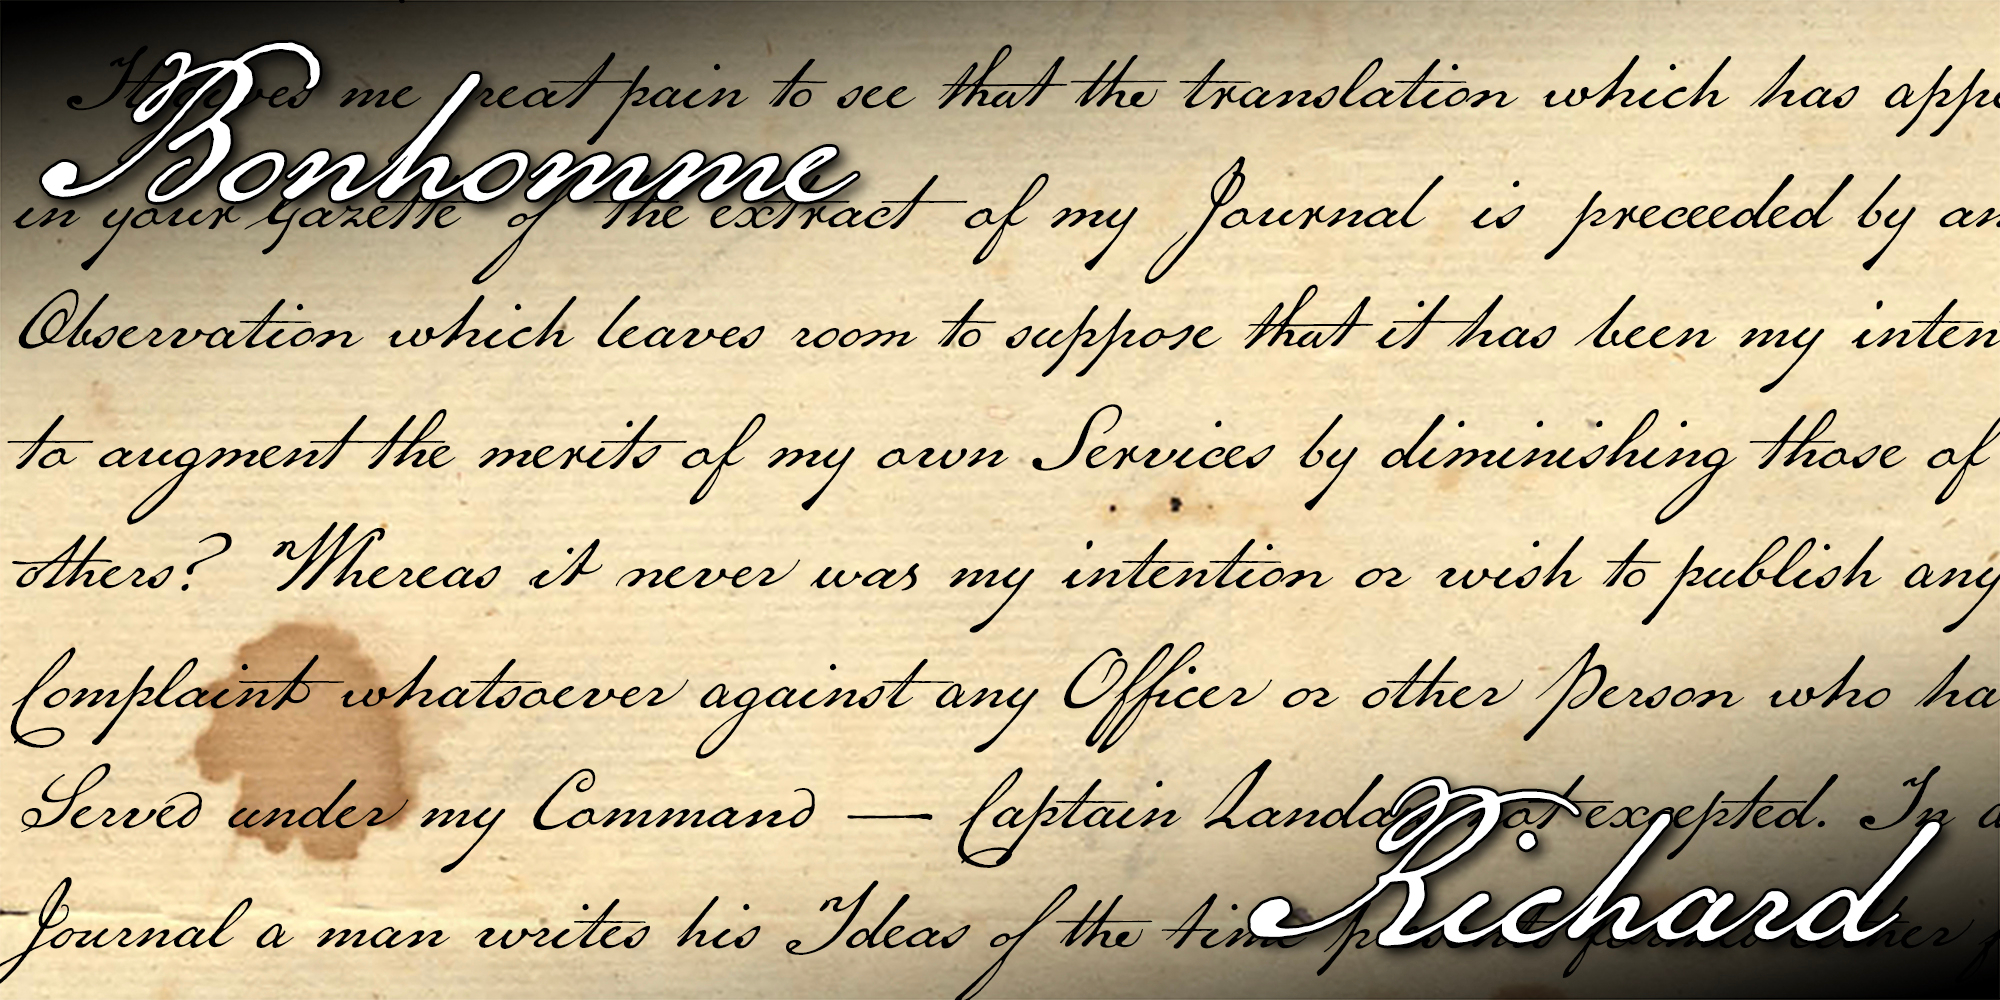 Bonhomme
It gives me great pain to see that the translation which has
in your Gazette of the extract of my Journal is preceeded by
Observation which leaves room to suppose that it has been my
to augment the merits of my own Services by diminishing those of
others? Whereas it never was my intention or wish to publish any
Complaint whatsoever against any Officer or other Person who
Served under my Command — Captain Landais not excepted. In
Journal a man writes his Ideas of the time
Richard